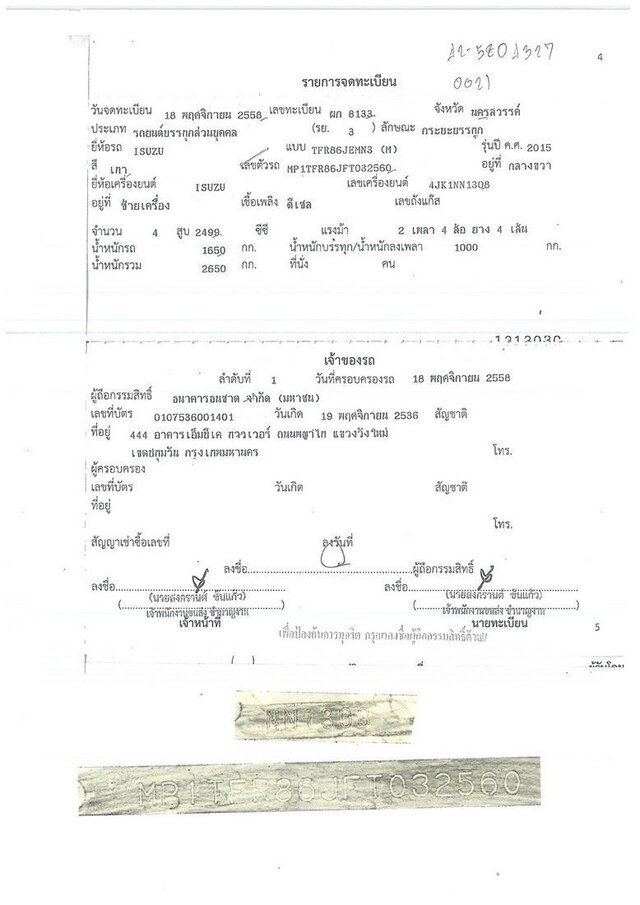 A2-5801327
4
รายการจดทะเบียน
0021
วันจดทะเบียน 18 พฤศจิกายน 2558 เลขทะเบียน ผก 8133 จังหวัด นครสวรรค์
ประเภท รถยนต์บรรทุกส่วนบุคคล (รย. 3 ) ลักษณะ กระบะบรรทุก
ยี่ห้อรถ ISUZU แบบ TFR86JEMN3 (M) รุ่นปี ค.ศ. 2015
สี เทา เลขตัวรถ MP1TFR86JFT032560 อยู่ที่ กลางขวา
ยี่ห้อเครื่องยนต์ ISUZU เลขเครื่องยนต์ 4JK1NN1308
อยู่ที่ ซ้ายเครื่อง เชื้อเพลิง ดีเซล เลขถังแก๊ส
จำนวน 4 สูบ 2499 ซีซี แรงม้า 2 เพลา 4 ล้อ ยาง 4 เส้น
น้ำหนักรถ 1650 กก. น้ำหนักบรรทุก/น้ำหนักลงเพลา 1000 กก.
น้ำหนักรวม 2650 กก. ที่นั่ง คน
1313030
เจ้าของรถ
ลำดับที่ 1 วันที่ครอบครองรถ 18 พฤศจิกายน 2558
ผู้ถือกรรมสิทธิ์ ธนาคารธนชาต จำกัด (มหาชน)
เลขที่บัตร 0107536001401 วันเกิด 19 พฤศจิกายน 2536 สัญชาติ
ที่อยู่ 444 อาคารเอ็มบีเค ทาวเวอร์ ถนนพญาไท แขวงวังใหม่
เขตปทุมวัน กรุงเทพมหานคร โทร.
ผู้ครอบครอง
เลขที่บัตร วันเกิด สัญชาติ
ที่อยู่
โทร.
สัญญาเช่าซื้อเลขที่ ลงวันที่
ลงชื่อ ผู้ถือกรรมสิทธิ์
ลงชื่อ ลงชื่อ
(นายสงกรานต์ ขันแก้ว) (นายสงกรานต์ ขันแก้ว)
เจ้าพนักงานขนส่ง ชำนาญงาน เจ้าพนักงานขนส่ง ชำนาญงาน
เจ้าหน้าที่ นายทะเบียน
เพื่อป้องกันการทุจริต กรุณาลงชื่อผู้ถือกรรมสิทธิ์ด้วย!!
5
NN1308
MP1TFR86JFT032560